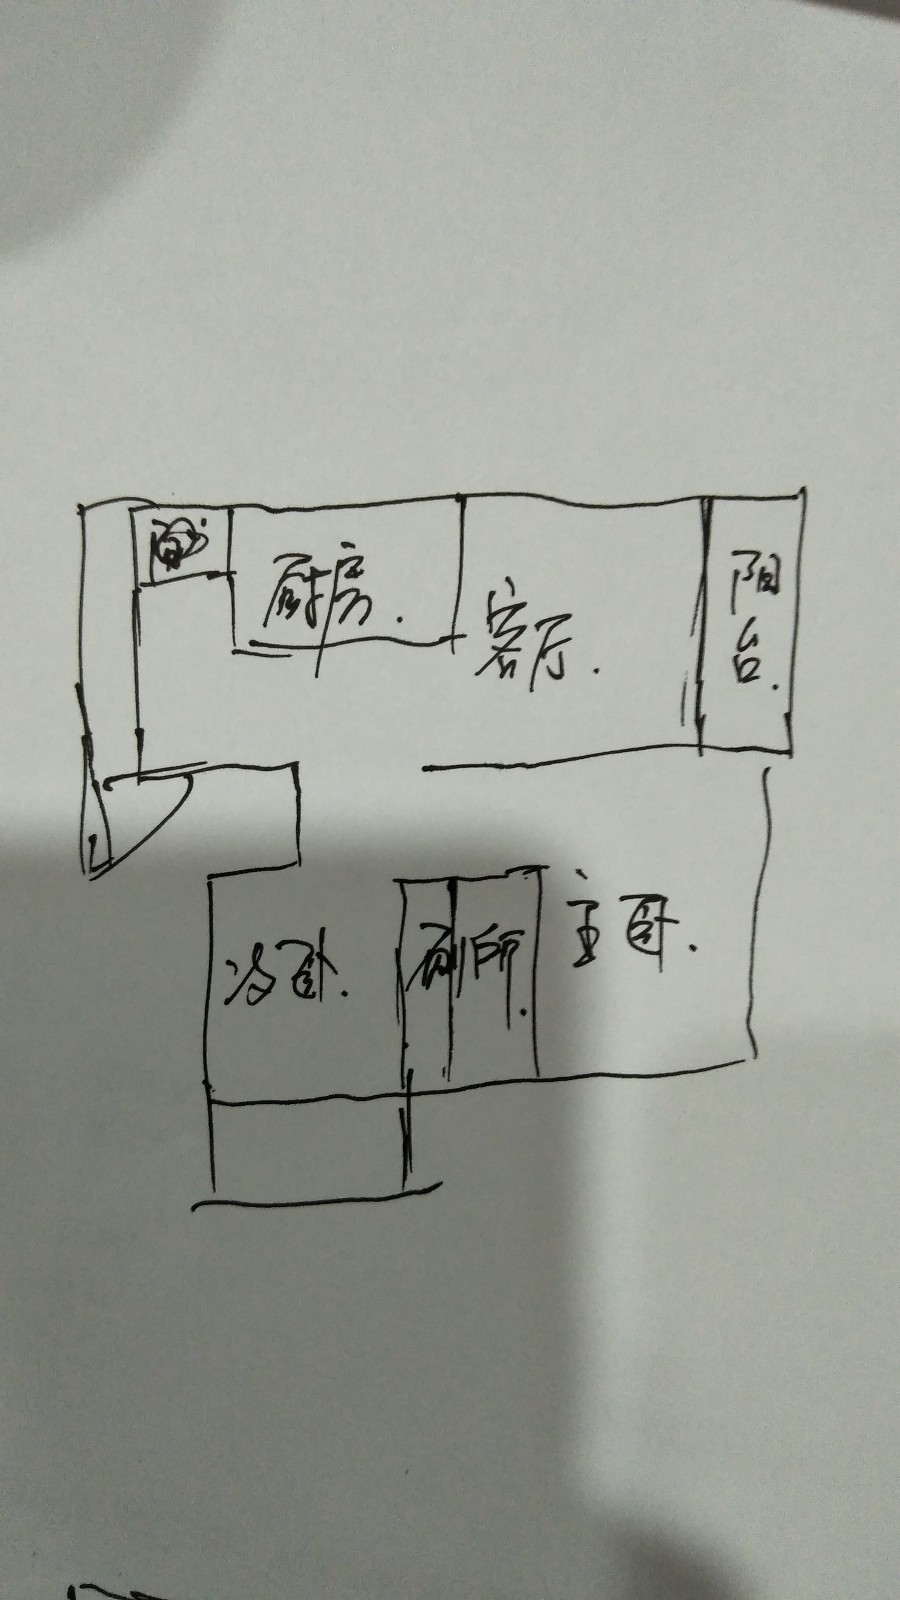 厨房.
客厅.
阳
台.
次卧.
厕所.
主卧.